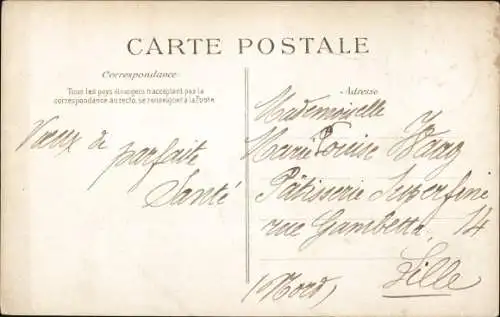 CARTE POSTALE
Correspondance
Tous les pays étrangers n'acceptant pas la
correspondance au recto, se renseigner à la Poste
Vœux de
parfaite
Santé
Adresse
Mademoiselle
Marie Louise
Pâtisserie Superfine
rue Gambetta, 14
Lille
(Nord)